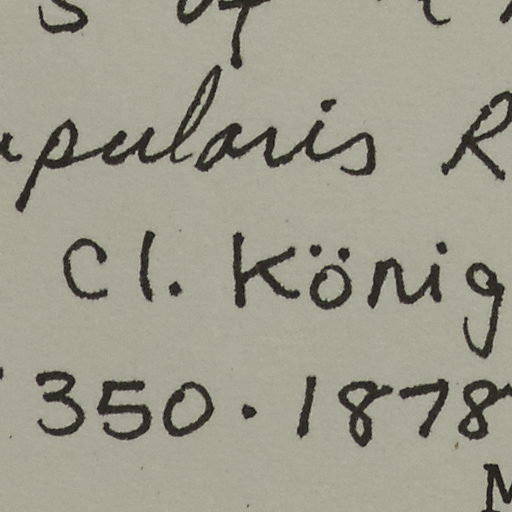 s of
upularis R
Cl. König
350. 1878
M